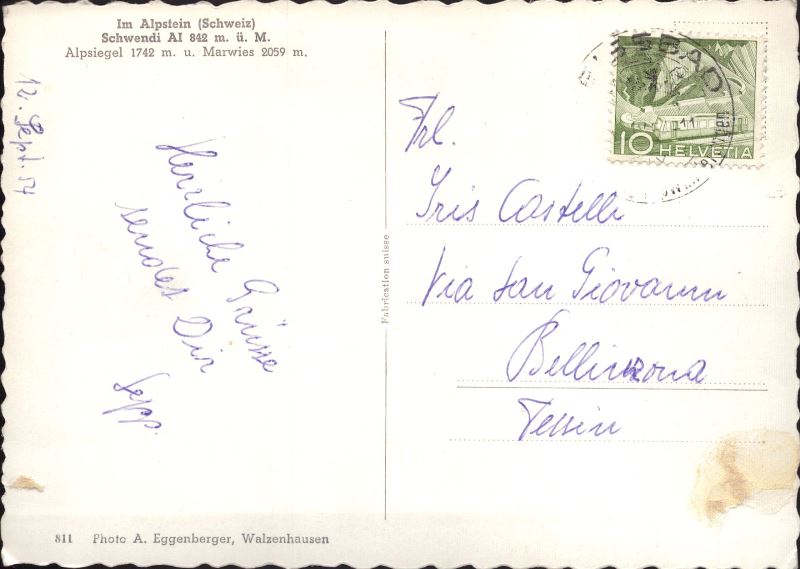 Im Alpstein (Schweiz)
Schwendi AI 842 m. ü. M.
Alpsiegel 1742 m. u. Marwies 2059 m.
12. Sept. 54
Herzliche Grüsse
sendet Dir
Sepp.
Fabrication suisse
10 HELVETIA
Frl.
Iris Castelli
Via San Giovanni
Bellinzona
Tessin
811 Photo A. Eggenberger, Walzenhausen